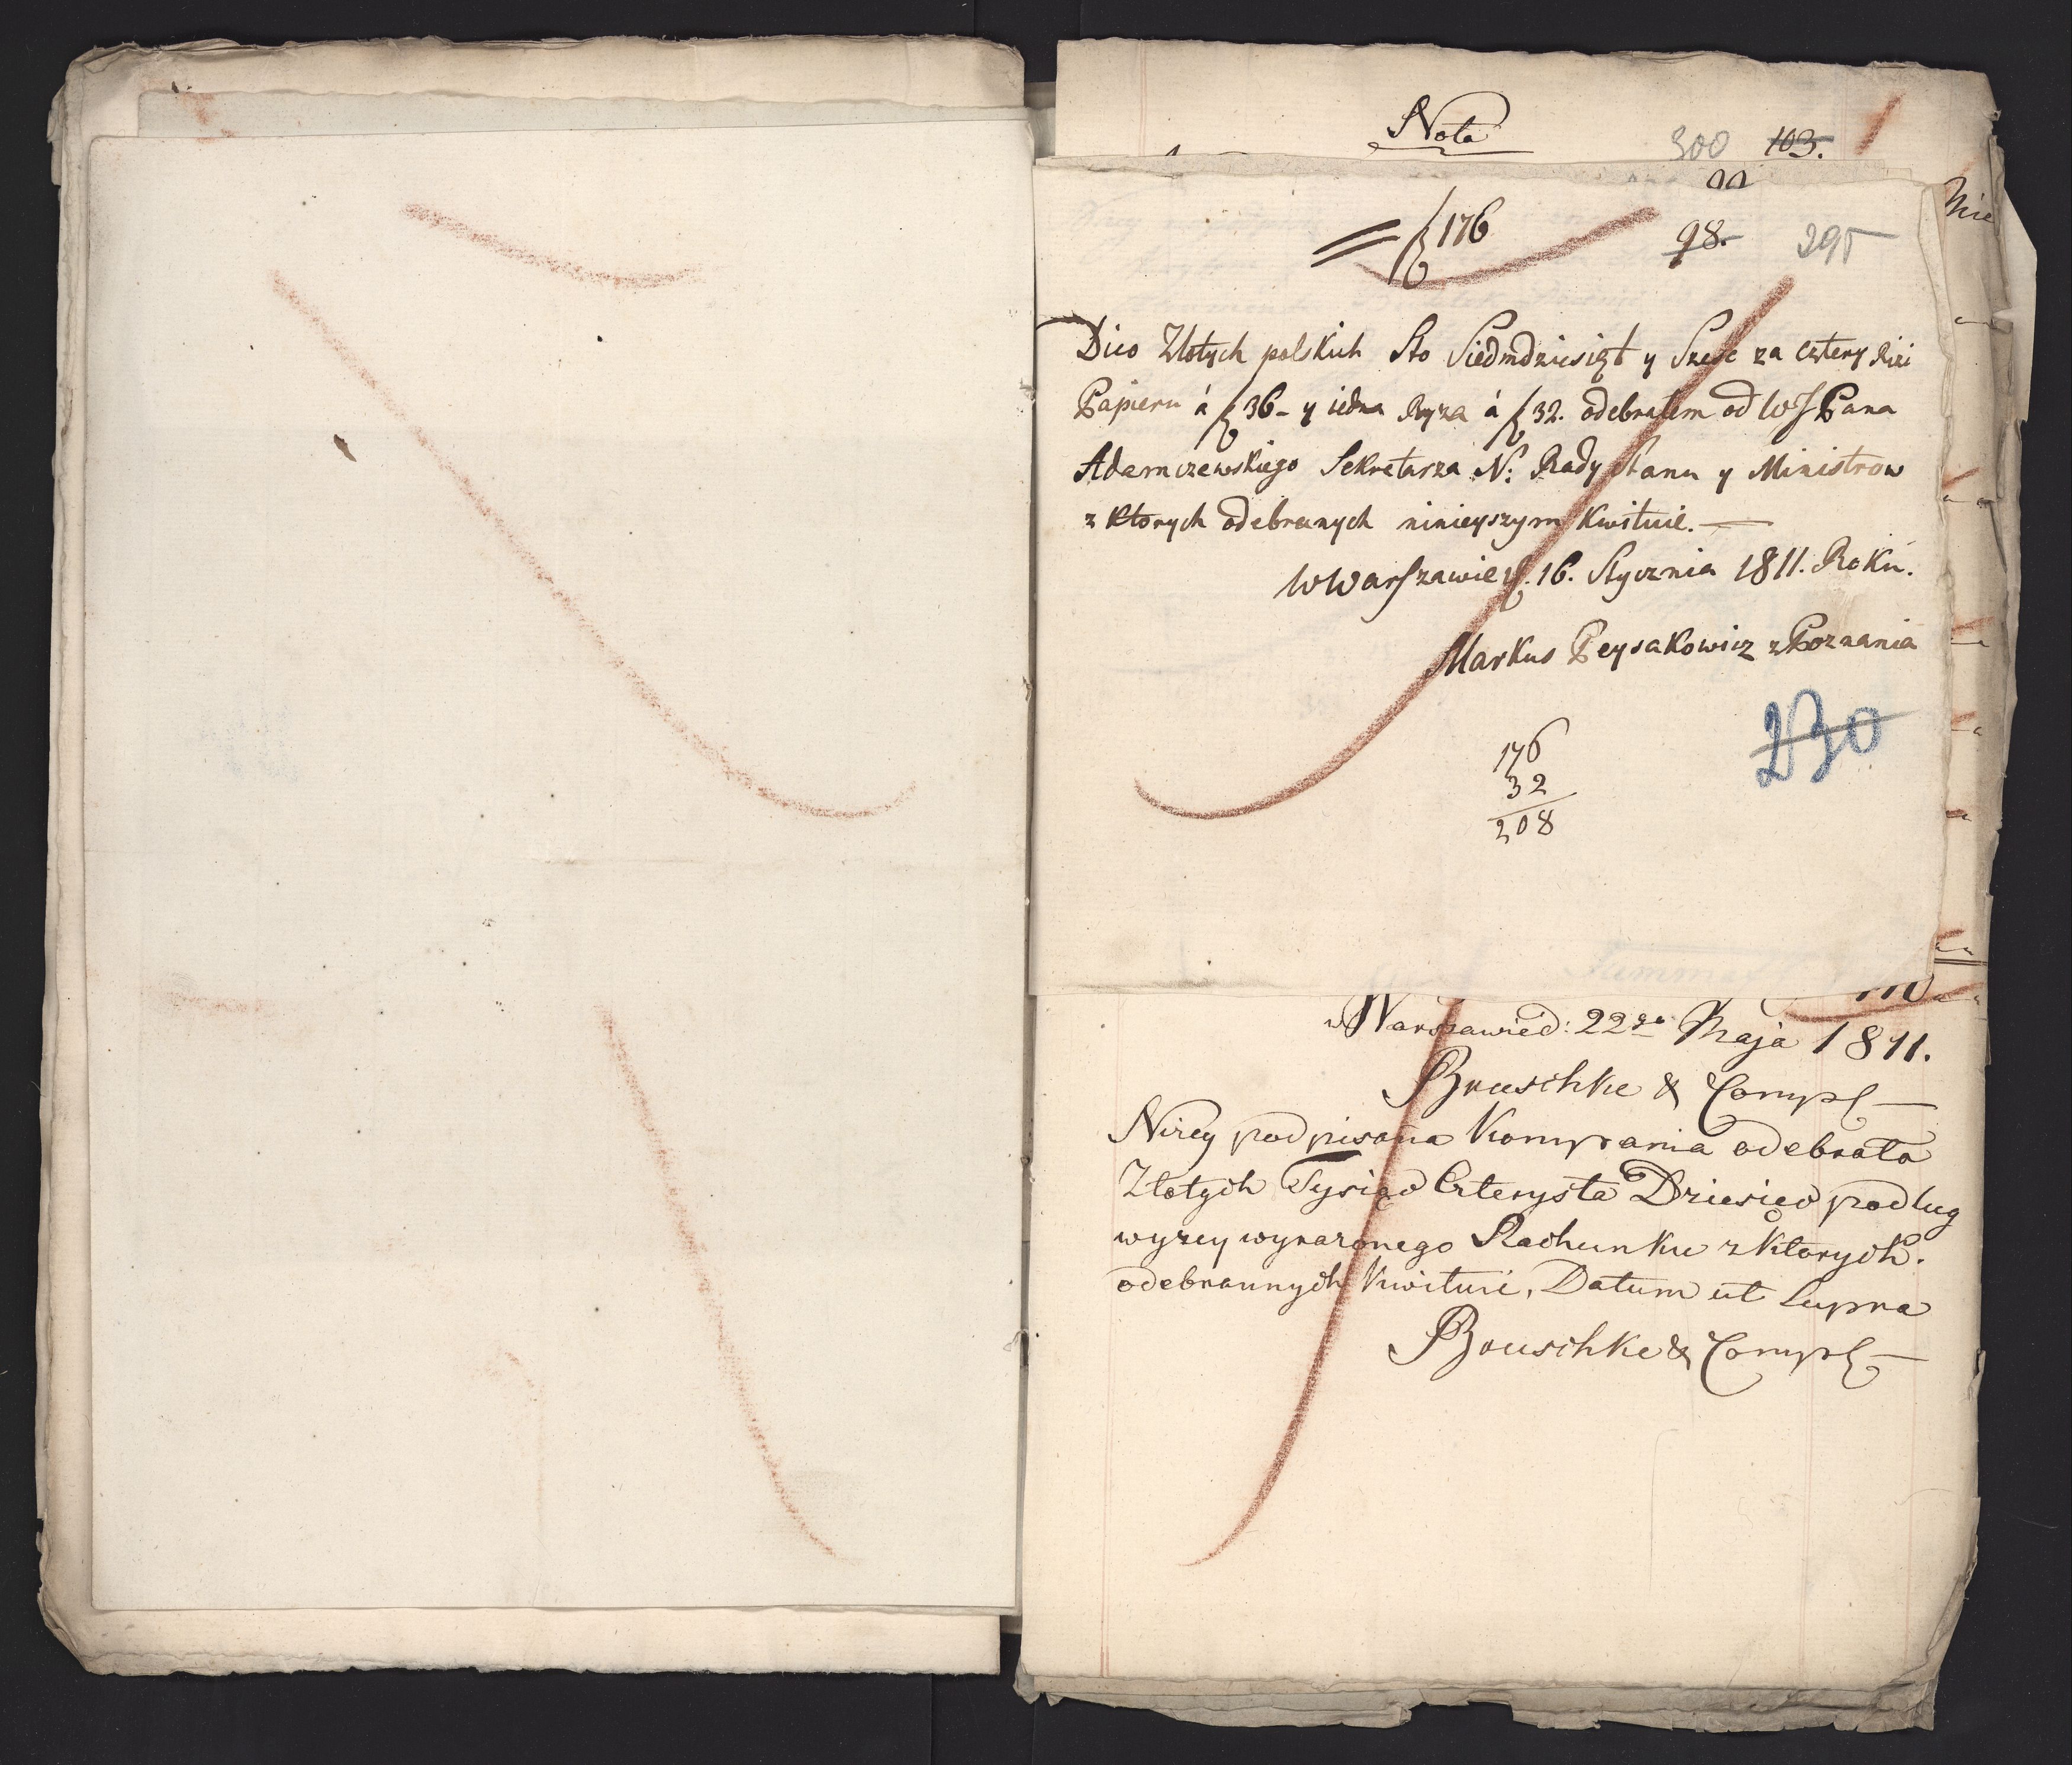 Nota
300 103.
= f 176
98. 295
Dico Złotych polskich Sto Siedmdziesiąt y Szesc za cztery Rizi
Papieru á f 36 - y iedna Ryza á f 32. odebrałem od WJ Pana
Adamczewskiego Sekretarza N: Rady Stanu y Ministrow
z Ktorych odebranych ninieyszym Kwituie. —
w Warszawie d. 16. Stycznia 1811. Roku.
Markus Peysakowicz z Poznania
230
176
32
208
w Warszawie d: 22go Maja 1811.
Bruschke & Comp
Nizey podpisana Kompania odebrała
Złotych Tysiąc Czterysta Dziesiec podlug
wyzey wyrazonego Rachunku z Ktorych
odebrannych Kwituie, Datum ut Supra
Bruschke & Comp